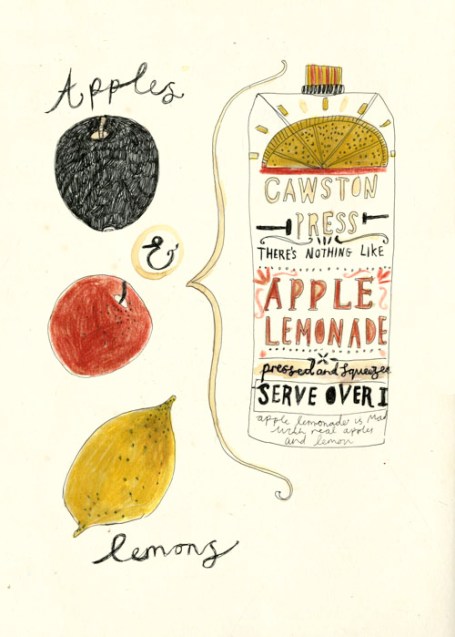 Apples
&
lemons
CAWSTON
PRESS
THERE'S NOTHING LIKE
APPLE
LEMONADE
pressed and squeezed
SERVE OVER I
apple lemonade is Mad
with real apples
and lemon